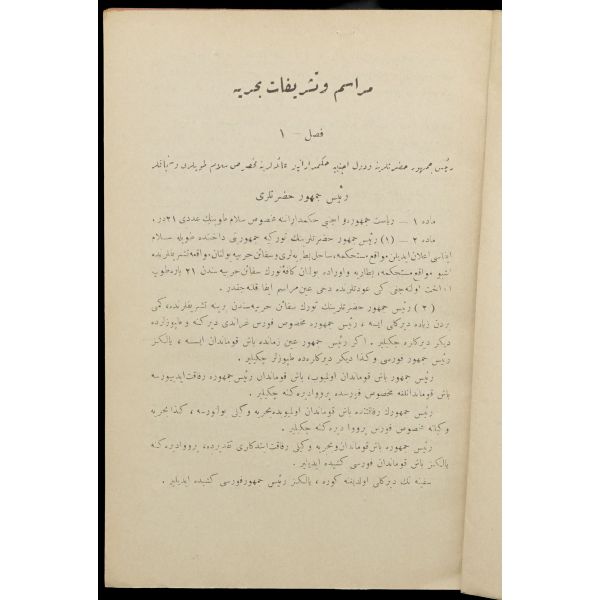 مراسم و تشریفات بحریه
فصل — ١
رئیس جمهور حضرتلرینه و دول اجنبیه حکمدارانی مخصوص سلام طوپلری
رئیس جمهور حضرتلری
ماده ١ — ریاست جمهور و اجنبی حکمدارانه مخصوص سلام طوپنك عددی ٢١ در .
ماده ٢ — (١) رئیس جمهور حضرتلرینك تورکیه جمهوریتی داخلنده طوپله سلام
ایفاسی اعلان ایدیلن مواقع مستحکمه، ساحل بطاریه لری و سفائن حربیه بولنان مواقعه تشریفلرنده
اشبو مواقع مستحکمه، بطاریه و اوراده بولنان کافهٔ تورك سفائن حربیه سندن ٢١ پاره طوپ
انداخت اولنه جغی کبی عودتلرنده دخی عین مراسم ایفا قلنه جقدر .
(٢) رئیس جمهور حضرتلرینك تورك سفائن حربیه سندن برینه تشریفلرنده، کمی
بردن زیاده دیرکلی ایسه ، رئیس جمهوره مخصوص فورس غراندی دیرکنه و طوپوزلرده
دیکر دیرکلره چکیلیر . اکر رئیس جمهور عین زمانده باش قوماندان ایسه ، یالکز
رئیس جمهور فورسی و کذا دیکر دیرکلرده طوپوزلر چکیلیر .
رئیس جمهور باش قوماندان اولمیوب، باش قوماندان رئیس جمهوره رفاقت ایدییورسه
باش قوماندانلغه مخصوص فورسده پرووا دیرکنه چکیلیر .
رئیس جمهورك رفاقتنده باش قوماندان اولمیوبده بحریه وکیلی بولنورسه ، کذا بحریه
وکیلنه مخصوص فورس پرووا دیرکنه چکیلیر .
رئیس جمهوره باش قوماندان و بحریه وکیلی رفاقت ایتدکلری تقدیرده، پرووا دیرکنه
یالکز باش قوماندان فورسی کشیده ایدیلیر .
سفینه تك دیرکلی اولدیغنه کوره ، یالکز رئیس جمهور فورسی کشیده ایدیلیر .